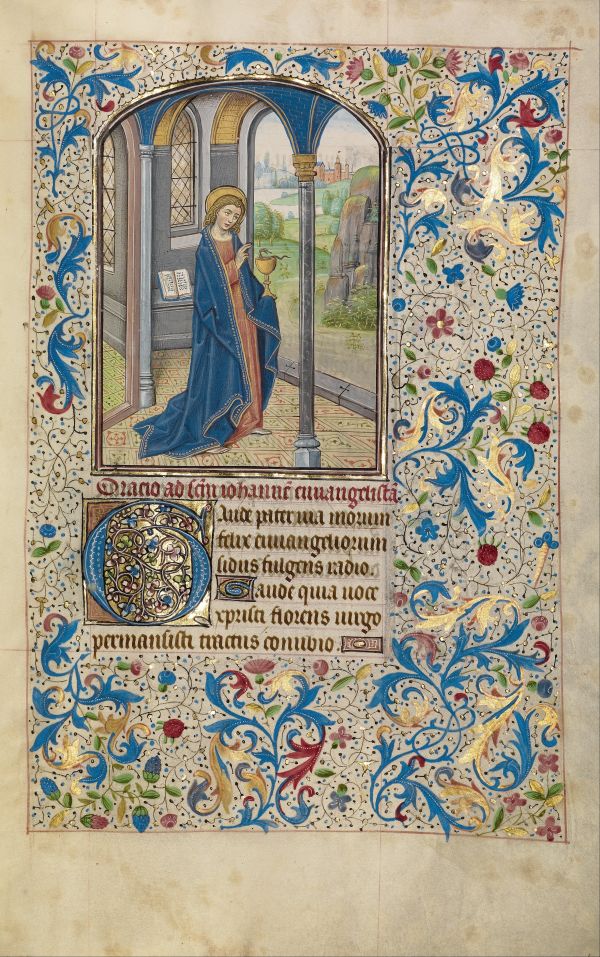 Oracio ad scm̄ iohannē euuangelistā
Gaude pater via morum
felix euuangeliorum
sidus fulgens radio.
Gaude quia uoce
xpristi florens uirgo
permansisti tractus conubio